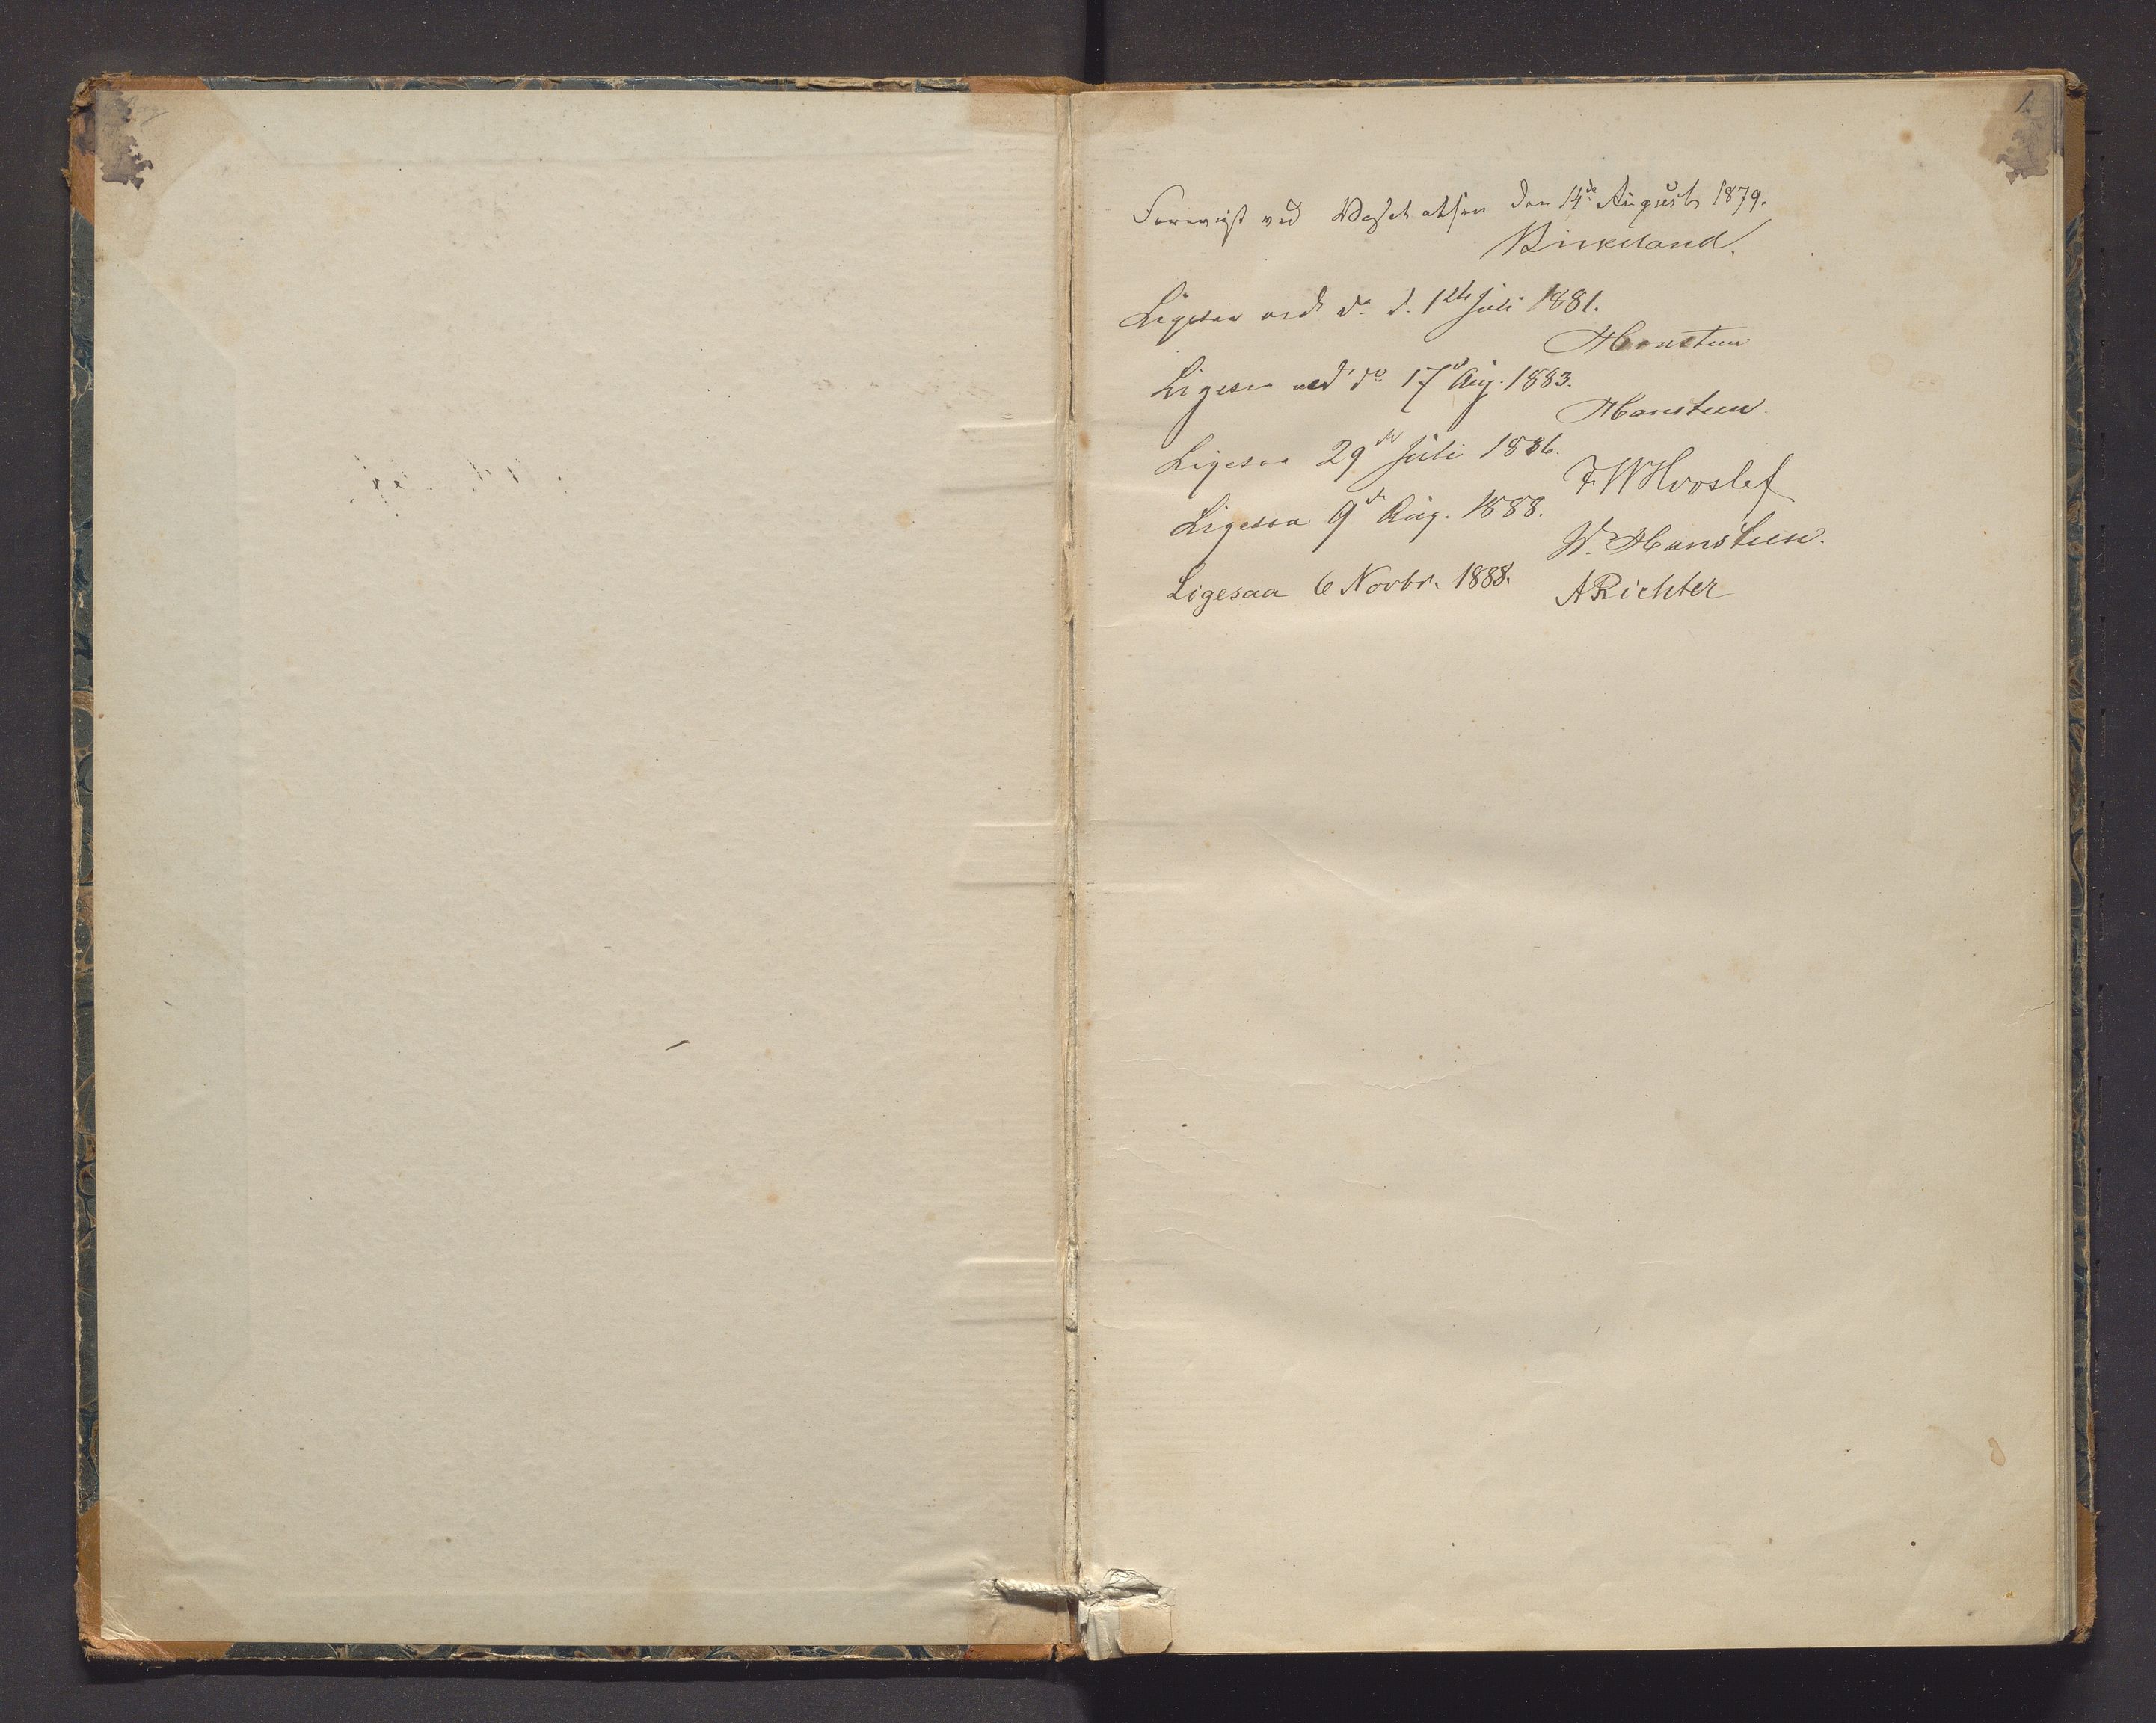 1.
Forevist ved Visitatsen den 14de August 1879.
Birkeland.
Ligesaa ved do d. 1ste Juli 1881.
Hansteen
Ligesaa ved do 17de Aug. 1883.
Hansteen
Ligesaa 29de Juli 1886.
F W Hvoslef
Ligesaa 9de Aug. 1888.
W. Hansteen.
Ligesaa 6 Novbr. 1888.
A Richter